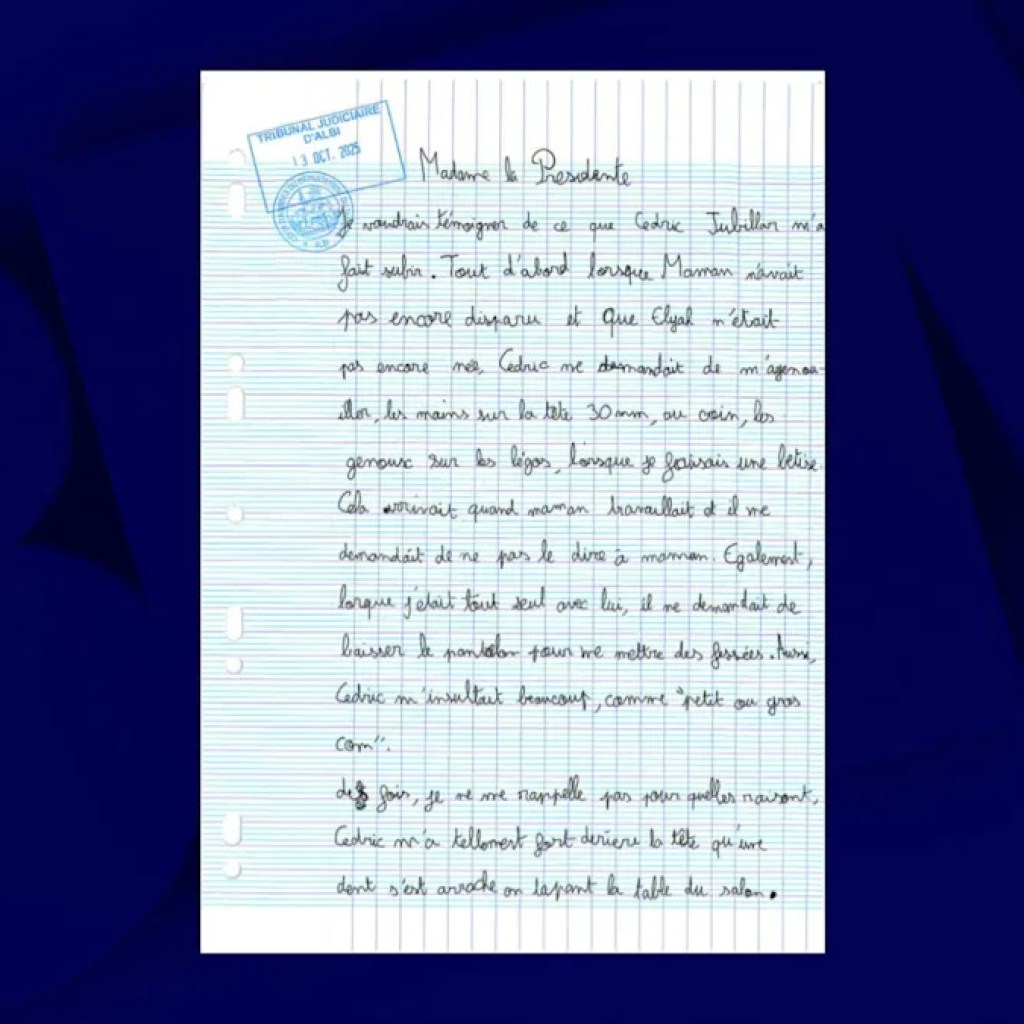 TRIBUNAL JUDICIAIRE
D'ALBI
13 OCT. 2025
Madame la Presidente
Je voudrais témoigner de ce que Cedric Jubillar m'a
fait subir. Tout d'abord lorsque Maman n'avait
pas encore disparu et que Elyah n'était
pas encore née, Cedric me demandait de m'agenou-
iller, les mains sur la tête 30 mm, au coin, les
genoux sur les légos, lorsque je faisais une bétise.
Cela arrivait quand maman travaillait et il me
demandait de ne pas le dire à maman. Egalement,
lorque j'était tout seul avec lui, il me demandait de
baisser le pantalon pour me mettre des fessées. Aussi,
Cedric m'insultait beaucoup, comme "petit ou gros
com".
des fois, je ne me rappelle pas pour quelles raisont,
Cedric m'a tellement fort deriere la tête qu'une
dent s'est arraché en tapant la table du salon.